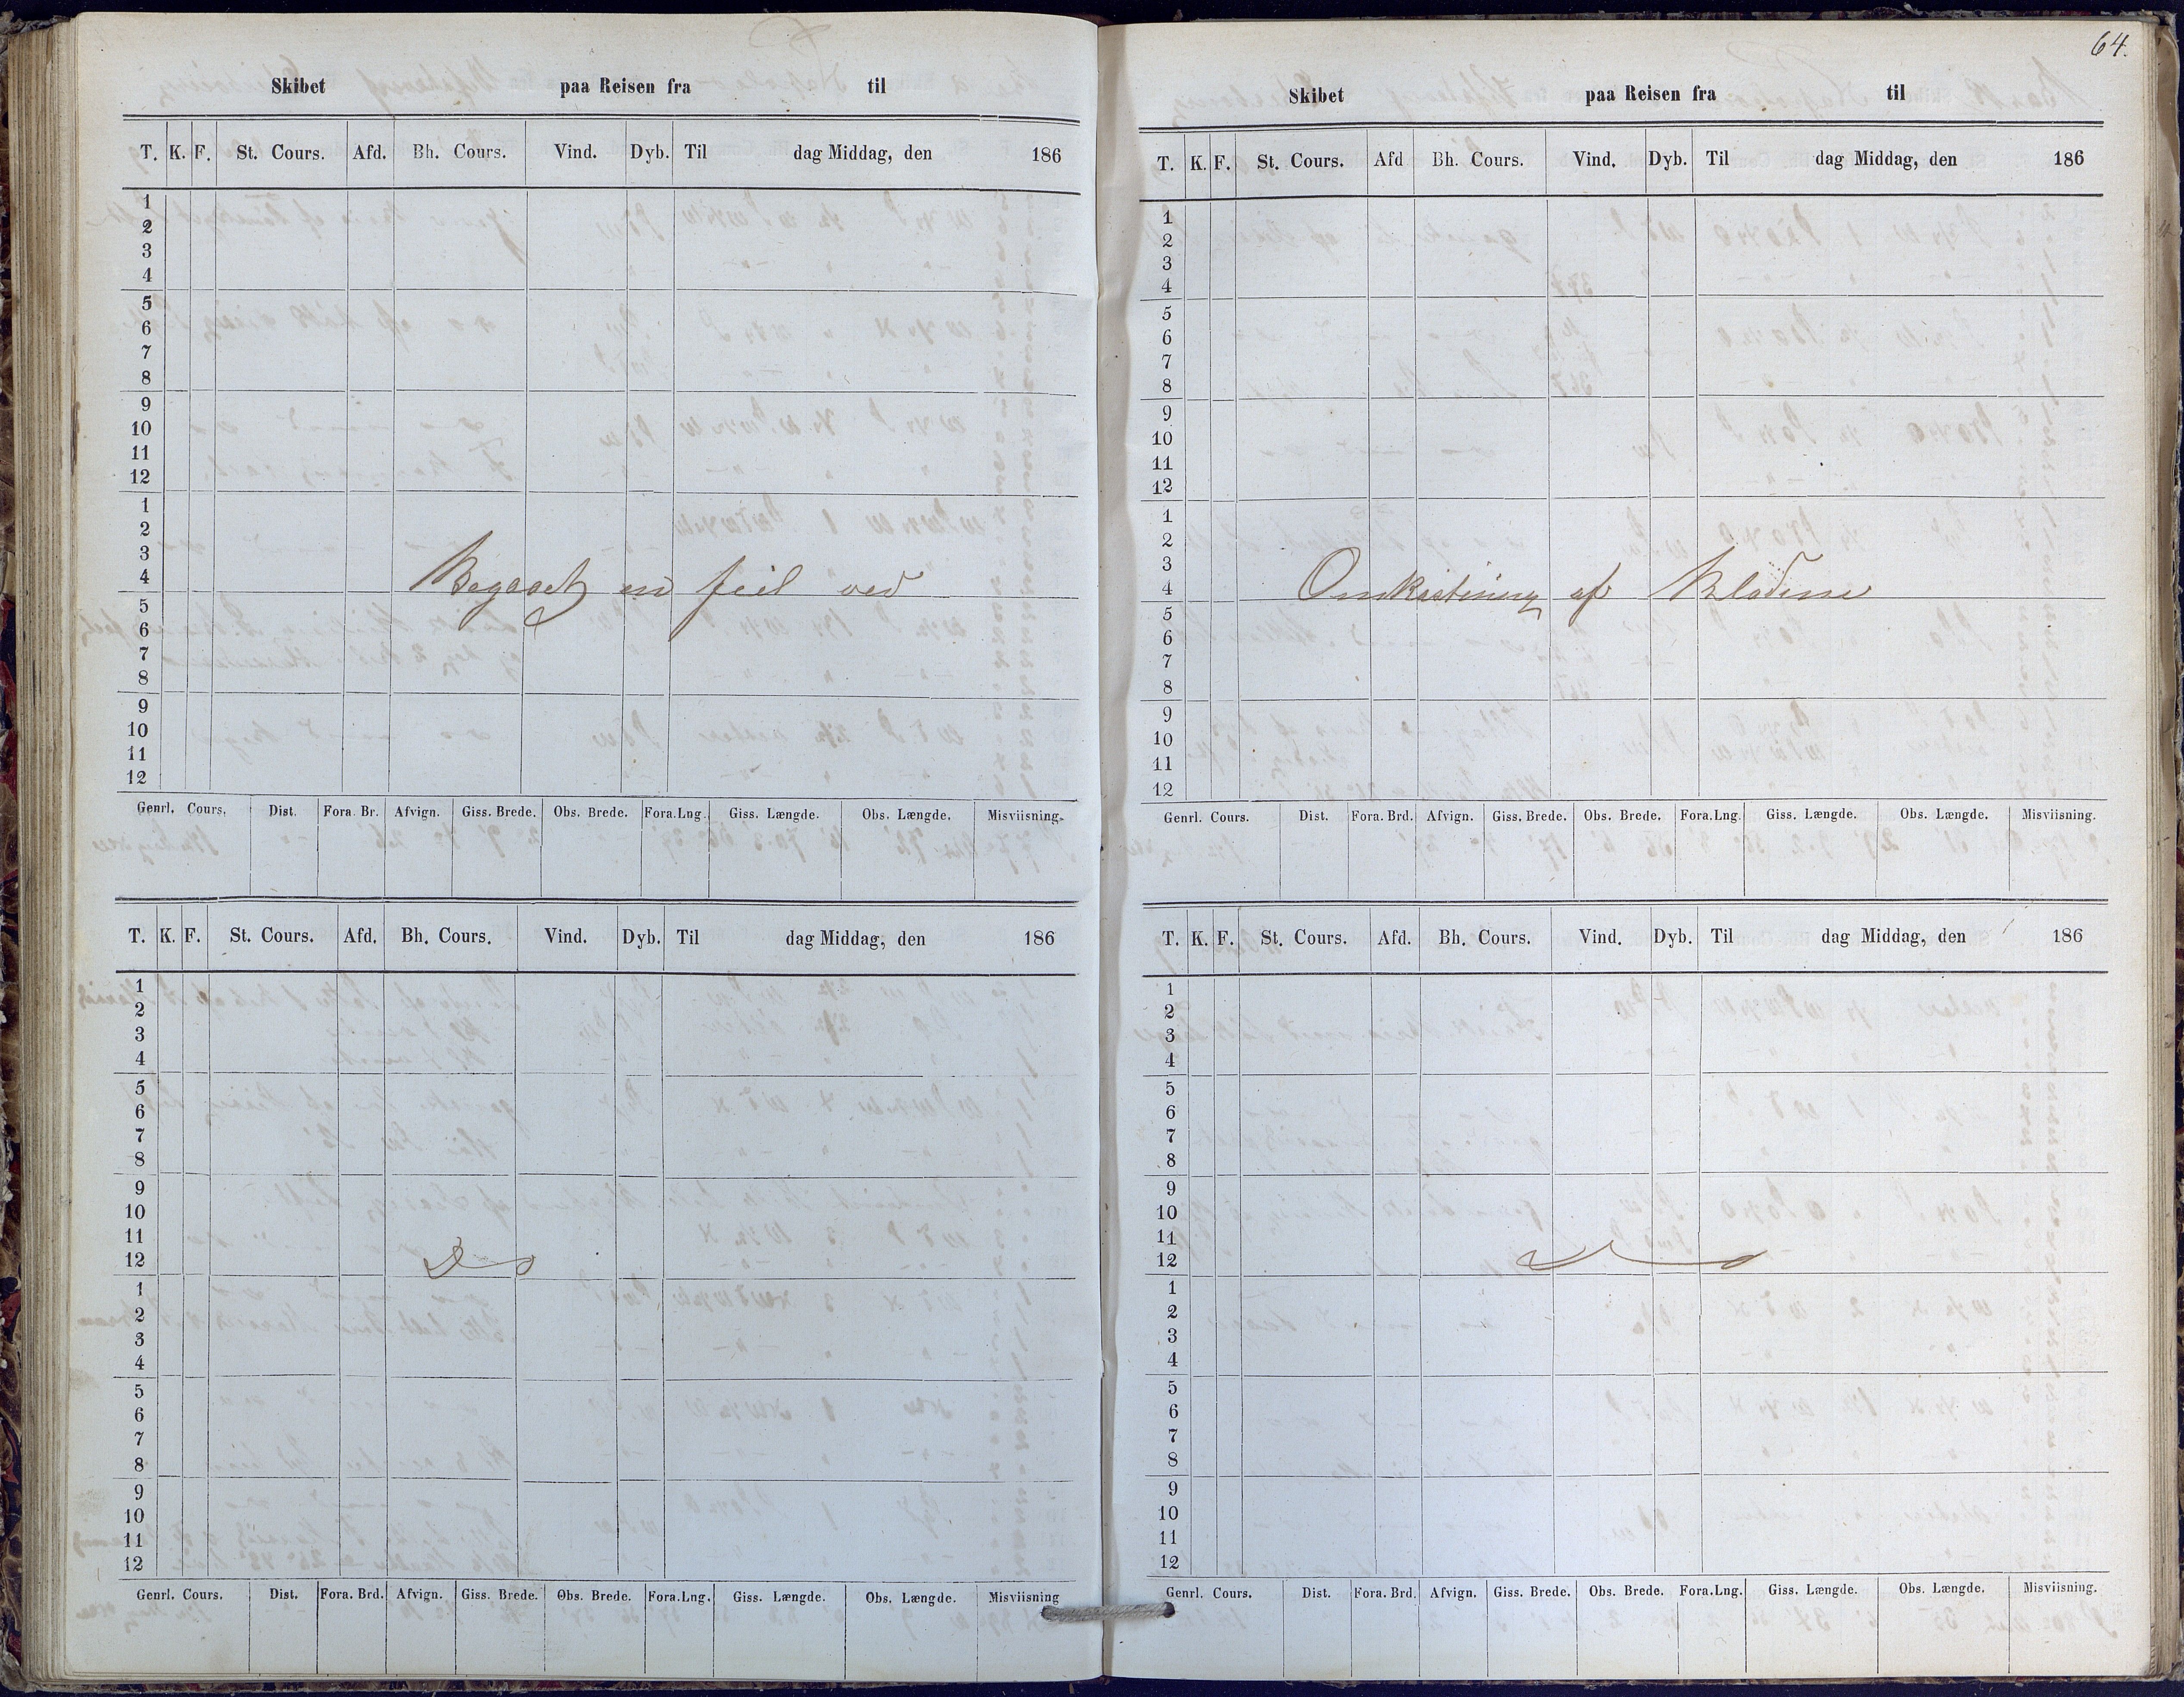 64.
Skibet paa Reisen fra til
T. K. F. St. Cours. Afd. Bh. Cours. Vind. Dyb. Til dag Middag, den 186
1
2
3
4
5
6
7
8
9
10
11
12
1
2
3
4
Begaaet en feil ved
5
6
7
8
9
10
11
12
Genrl. Cours. Dist. Fora. Br. Afvign. Giss. Brede. Obs. Brede. Fora.Lng. Giss. Længde. Obs. Længde. Misviisning.
T. K. F. St. Cours. Afd. Bh. Cours. Vind. Dyb. Til dag Middag, den 186
1
2
3
4
5
6
7
8
9
10
11
12
Do
1
2
3
4
5
6
7
8
9
10
11
12
Genrl. Cours. Dist. Fora. Brd. Afvign. Giss. Brede. Obs. Brede. Fora.Lng. Giss. Længde. Obs. Længde. Misviisning
Skibet paa Reisen fra til
T. K. F. St. Cours. Afd Bh. Cours. Vind. Dyb. Til dag Middag, den 186
1
2
3
4
5
6
7
8
9
10
11
12
1
2
3
4
Omkastning af Bladene
5
6
7
8
9
10
11
12
Genrl. Cours. Dist. Fora. Brd. Afvign. Giss. Brede. Obs. Brede. Fora.Lng. Giss. Længde. Obs. Længde. Misviisning.
T. K. F. St. Cours. Afd. Bh. Cours. Vind. Dyb. Til dag Middag, den 186
1
2
3
4
5
6
7
8
9
10
11
12
1
2
3
4
5
6
7
8
9
10
11
12
Genrl. Cours. Dist. Fora. Brd. Afvign. Giss. Brede. Obs. Brede. Fora.Lng. Giss. Længde. Obs. Længde. Misviisning.